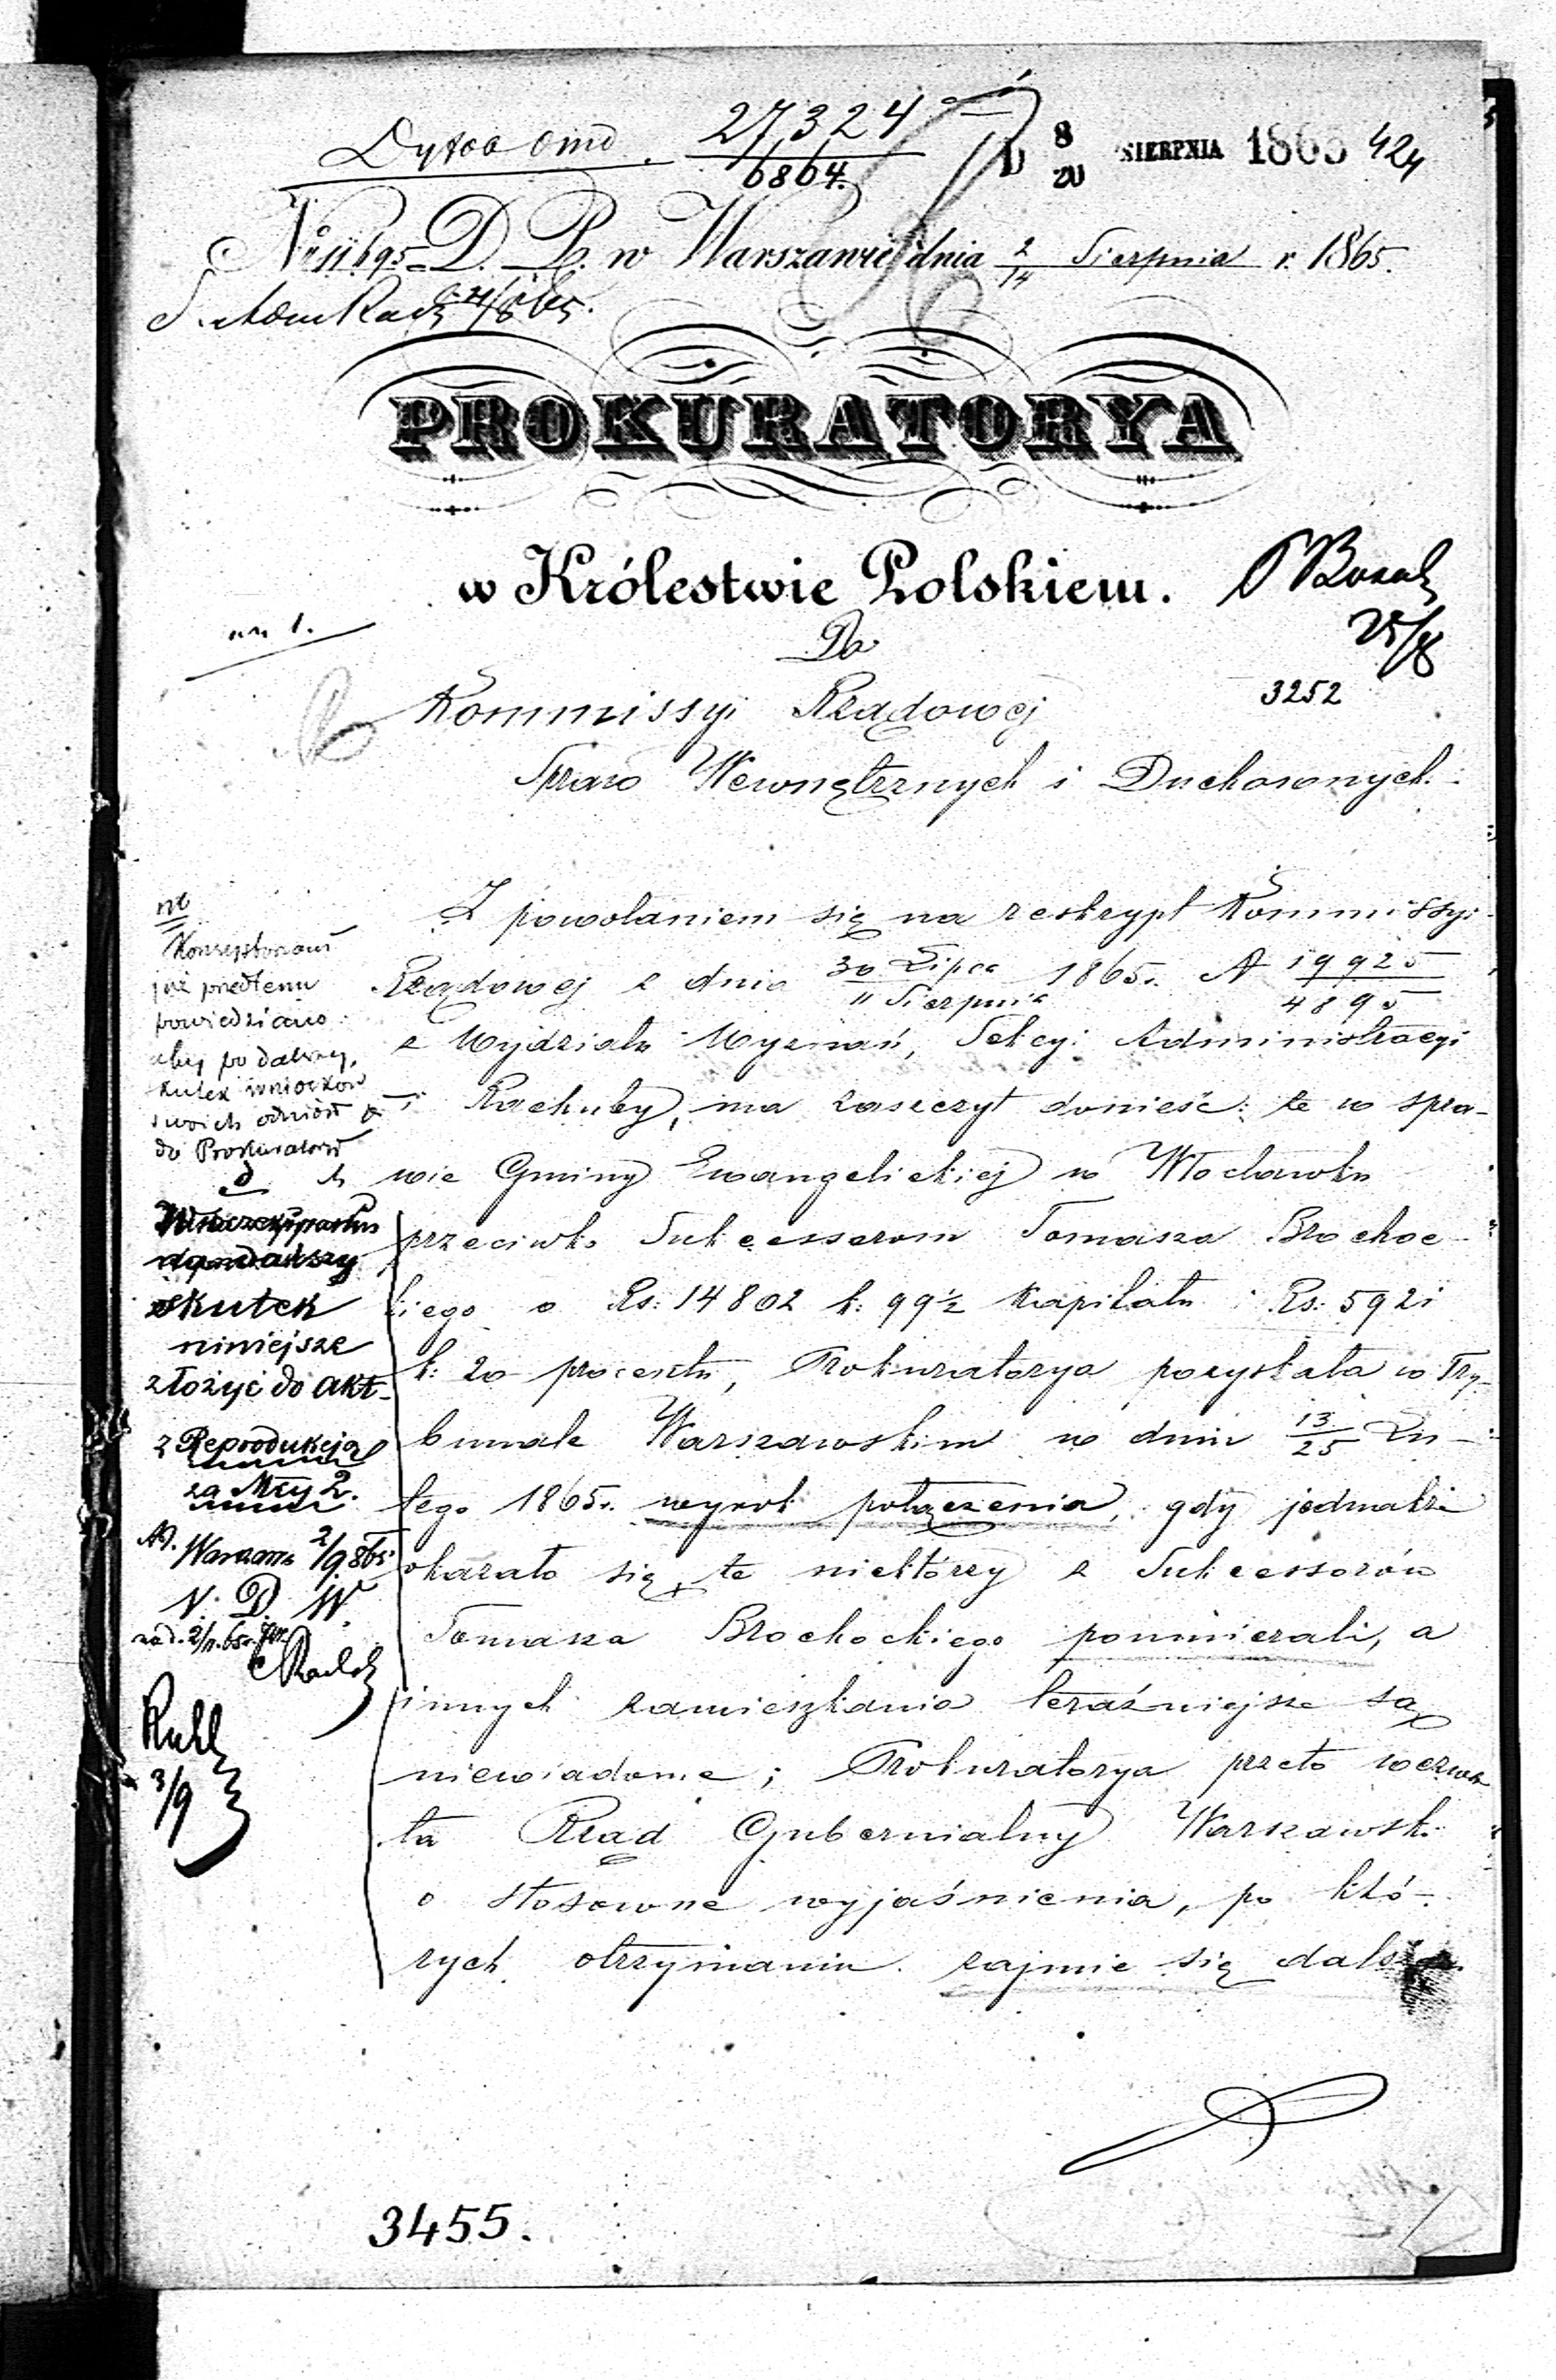 27324
6864.
D 8/20 SIERPNIA 1865 424
No 11695 D. P. w Warszawie dnia 2/14 Sierpnia r. 1865.
PROKURATORYA
w Królestwie Polskiem.
25/8
Do
3252
Kommissyi Rządowej
Spraw Wewnętrznych i Duchownych.
Z powołaniem się na reskrypt Kommissyi
Rządowej z dnia 30 Lipca / 11 Sierpnia 1865 r. N 19925 / 4895
z Wydziału Wyznań, Sekcyi Administracyi
i Rachuby, ma zaszczyt donieść: że w spra-
wie Gminy Ewangelickiej w Włocławku
przeciwko Sukcessorom Tomasza Brochoc-
kiego o Rs: 14802 k: 99½ kapitału i Rs: 5921
k: 20 procentu, Prokuratorya pozyskała w Try-
bunale Warszawskim w dniu 13/25 Lu-
tego 1865 r. wyrok połączenia, gdy jednakże
okazało się że niektórzy z Sukcessorów
Tomasza Brochockiego poumierali, a
innych zamieszkania teraźniejsze są
niewiadome; Prokuratorya przeto wezwa-
ła Rząd Gubernialny Warszawski
o stosowne wyjaśnienia, po któ-
rych otrzymaniu zajmie się
już przedtem
powiedziano
aby po dalszy
skutek wniosków
swoich odniósł się
do Prokuratoryi
skutek
niniejsze
złożyć do akt-
z Reprodukcją
za Mcy 2.
Warszawa 2/9 865
N. D. W.
3/9
3455.